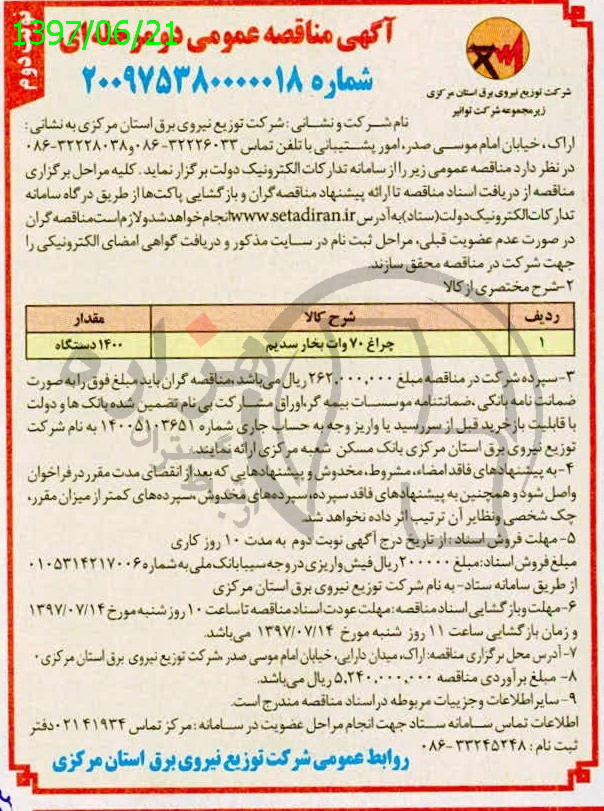 1397/06/21
نوبت دوم
آگهی مناقصه عمومی دو مرحله ای
شماره ۲۰۰۹۷۵۳۸۰۰۰۰۰۱۸
شرکت توزیع نیروی برق استان مرکزی
زیرمجموعه شرکت توانیر
نام شرکت و نشانی : شرکت توزیع نیروی برق استان مرکزی به نشانی :
اراک ، خیابان امام موسی صدر، امور پشتیبانی با تلفن تماس ۳۲۲۲۶۰۳۳-۰۸۶ و ۳۲۲۲۸۰۳۸-۰۸۶
در نظر دارد مناقصه عمومی زیر را از سامانه تدارکات الکترونیک دولت برگزار نماید . کلیه مراحل برگزاری
مناقصه از دریافت اسناد مناقصه تا ارائه پیشنهاد مناقصه گران و بازگشایی پاکت‌ها از طریق درگاه سامانه
تدارکات الکترونیک دولت (ستاد) به آدرس www.setadiran.ir انجام خواهد شد و لازم است مناقصه گران
در صورت عدم عضویت قبلی، مراحل ثبت نام در سایت مذکور و دریافت گواهی امضای الکترونیکی را
جهت شرکت در مناقصه محقق سازند.
۲-شرح مختصری از کالا
ردیف شرح کالا مقدار
۱ چراغ ۷۰ وات بخار سدیم ۱۴۰۰ دستگاه
۳- سپرده شرکت در مناقصه مبلغ ۲۶۲,۰۰۰,۰۰۰ ریال می‌باشد، مناقصه گران باید مبلغ فوق را به صورت
ضمانت نامه بانکی ، ضمانتنامه موسسات بیمه گر، اوراق مشارکت بی نام تضمین شده بانک ها و دولت
با قابلیت بازخرید قبل از سررسید یا واریز وجه به حساب جاری شماره ۱۴۰۰۵۱۰۳۶۵۱ به نام شرکت
توزیع نیروی برق استان مرکزی بانک مسکن شعبه مرکزی ارائه نمایند.
۴- به پیشنهادهای فاقد امضاء، مشروط، مخدوش و پیشنهادهایی که بعد از انقضای مدت مقرر در فراخوان
واصل شود و همچنین به پیشنهادهای فاقد سپرده، سپرده‌های مخدوش، سپرده‌های کمتر از میزان مقرر،
چک شخصی و نظایر آن ترتیب اثر داده نخواهد شد.
۵- مهلت فروش اسناد : از تاریخ درج آگهی نوبت دوم به مدت ۱۰ روز کاری
مبلغ فروش اسناد: مبلغ ۲۰۰۰۰۰ ریال فیش واریزی در وجه سیبا بانک ملی به شماره ۰۱۰۵۳۱۴۲۱۷۰۰۶
از طریق سامانه ستاد- به نام شرکت توزیع نیروی برق استان مرکزی
۶- مهلت و بازگشایی اسناد مناقصه : مهلت عودت اسناد مناقصه تا ساعت ۱۰ روز شنبه مورخ ۱۳۹۷/۰۷/۱۴
و زمان بازگشایی ساعت ۱۱ روز شنبه مورخ ۱۳۹۷/۰۷/۱۴ می‌باشد.
۷- آدرس محل برگزاری مناقصه: اراک، میدان دارایی، خیابان امام موسی صدر ،شرکت توزیع نیروی برق استان مرکزی.
۸- مبلغ برآوردی مناقصه ۵,۲۴۰,۰۰۰,۰۰۰ ریال می‌باشد.
۹- سایر اطلاعات و جزییات مربوطه در اسناد مناقصه مندرج است.
اطلاعات تماس سامانه ستاد جهت انجام مراحل عضویت در سامانه : مرکز تماس ۴۱۹۳۴-۰۲۱ دفتر
ثبت نام : ۳۳۲۴۵۲۴۸-۰۸۶
روابط عمومی شرکت توزیع نیروی برق استان مرکزی